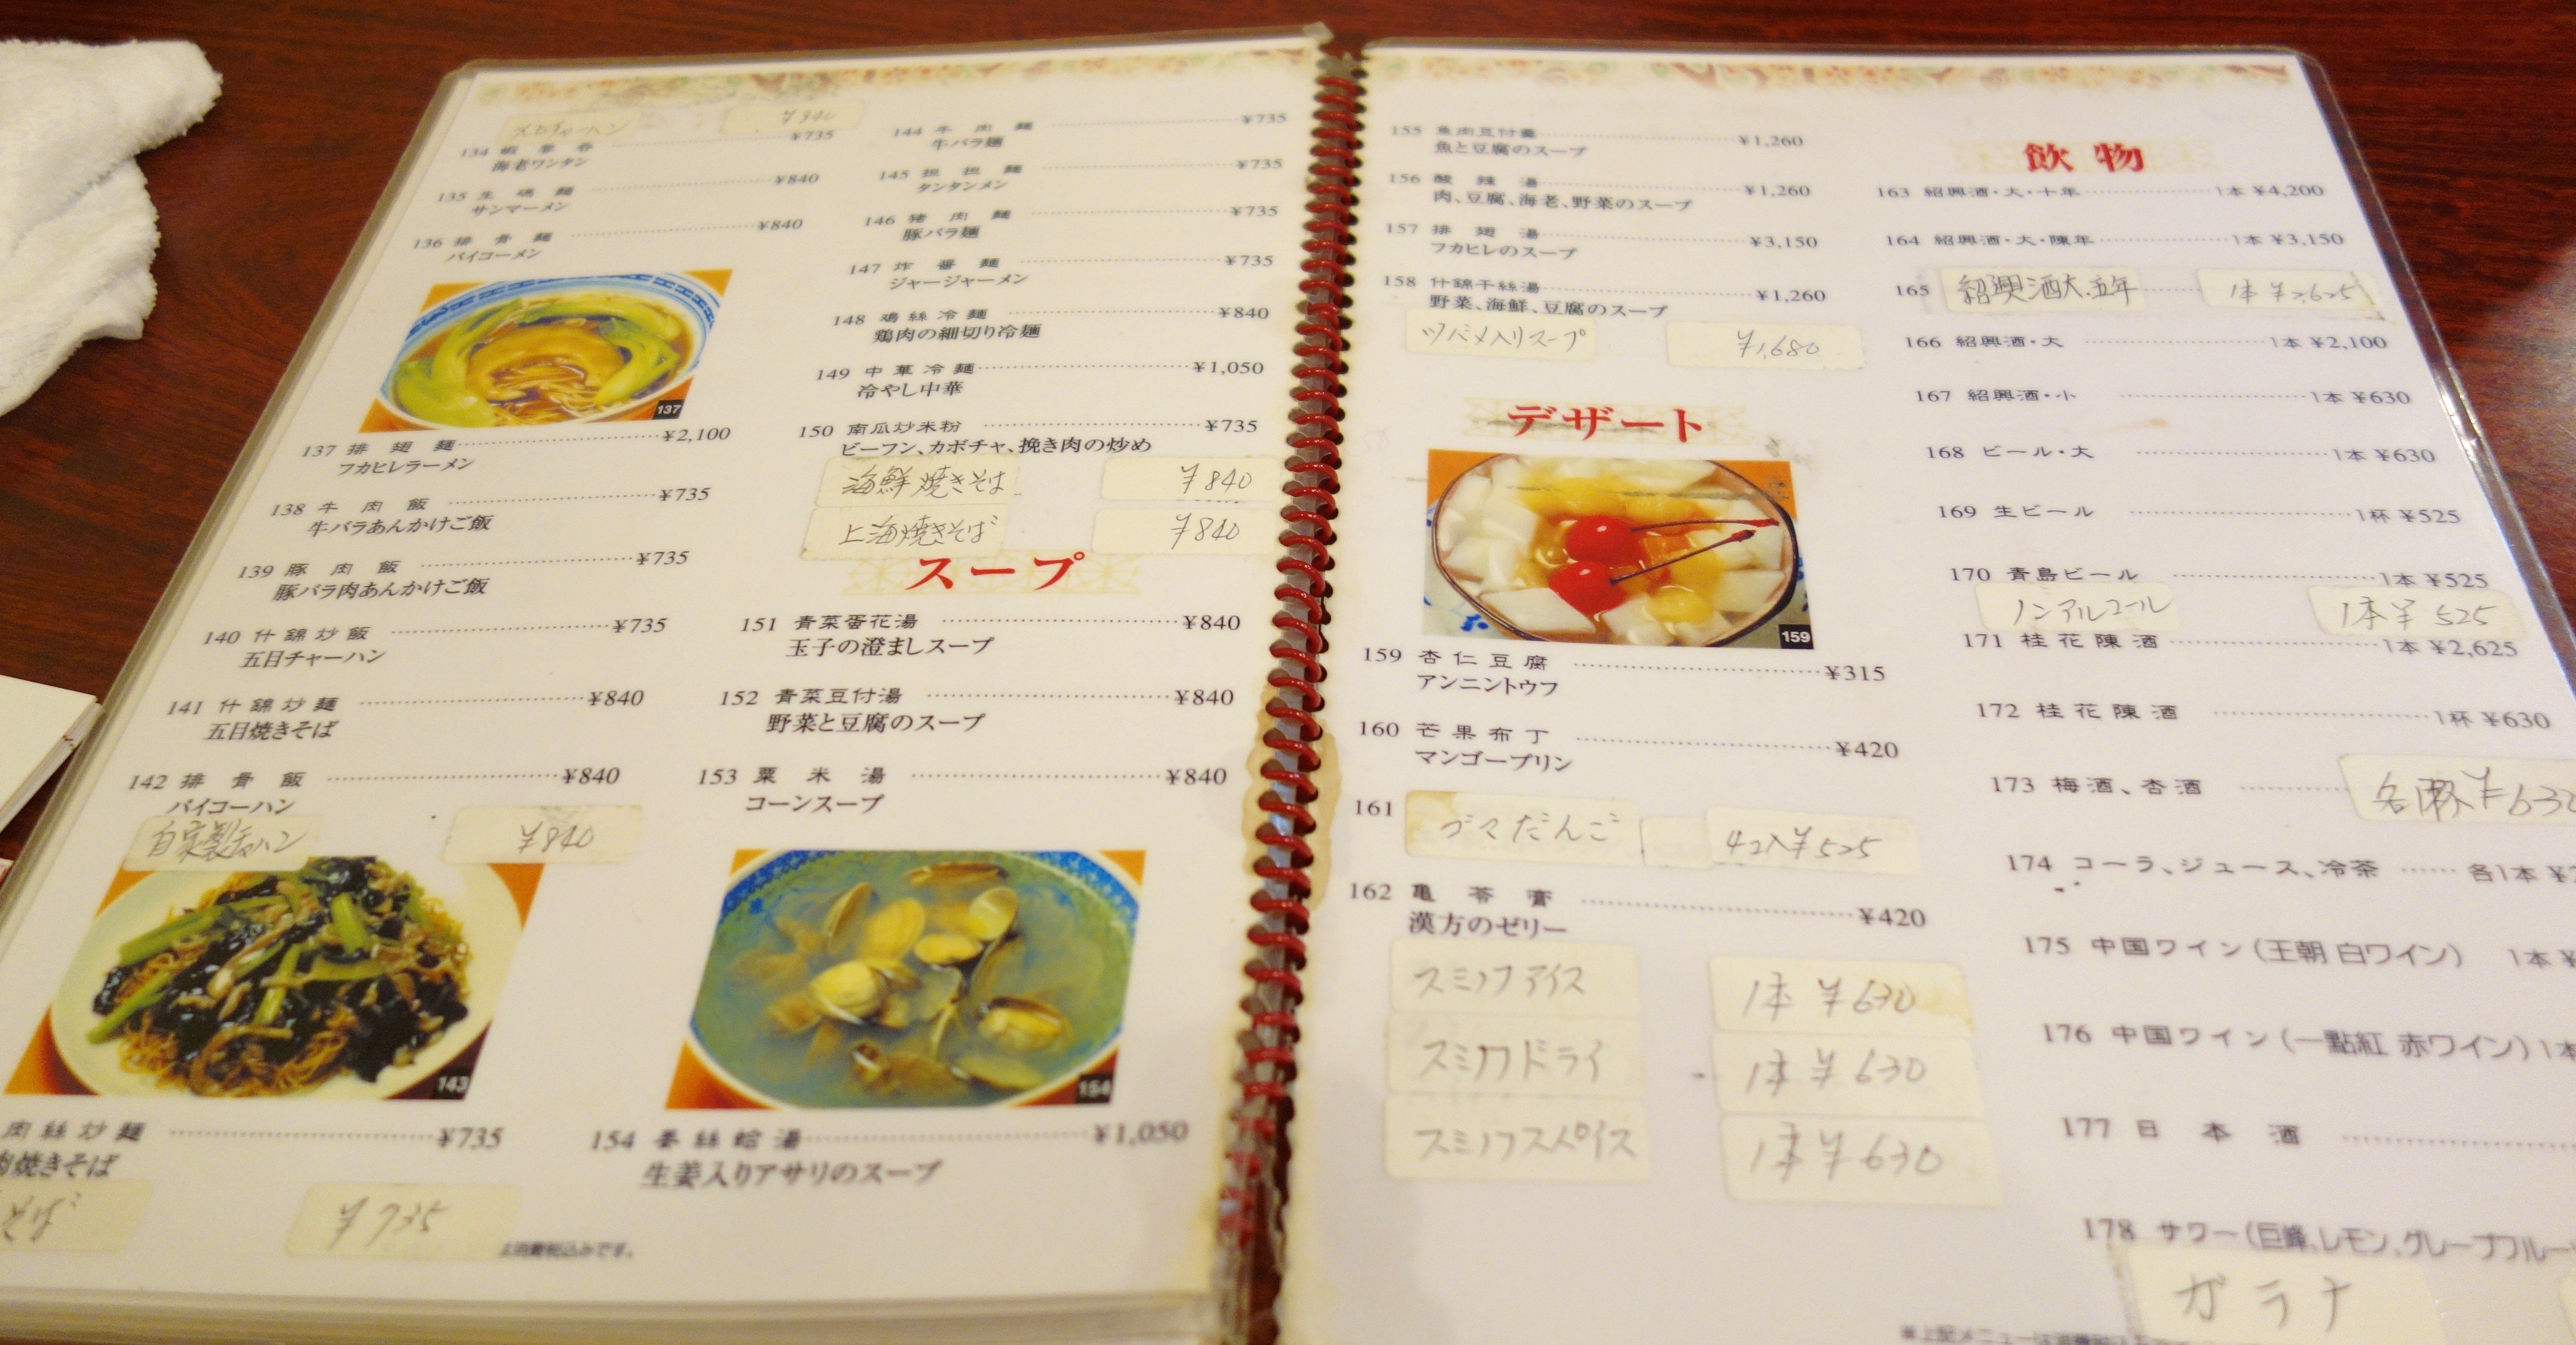 ¥840
134 ¥735
海老ワンタン
135 生碼麺 ¥840
サンマーメン
136 排骨麺 ¥840
パイコーメン
137
137 排翅麺 ¥2,100
フカヒレラーメン
138 牛肉飯 ¥735
牛バラあんかけご飯
139 豚肉飯 ¥735
豚バラ肉あんかけご飯
140 什錦炒飯 ¥735
五目チャーハン
141 什錦炒麺 ¥840
五目焼きそば
142 排骨飯 ¥840
パイコーハン
自家製チャーハン ¥840
143
肉絲炒麺 ¥735
肉焼きそば
そば ¥735
144 牛肉麺 ¥735
牛バラ麺
145 担担麺 ¥735
タンタンメン
146 猪肉麺 ¥735
豚バラ麺
147 炸醤麺 ¥735
ジャージャーメン
148 鶏絲冷麺 ¥840
鶏肉の細切り冷麺
149 中華冷麺 ¥1,050
冷やし中華
150 南瓜炒米粉 ¥735
ビーフン、カボチャ、挽き肉の炒め
海鮮焼きそば ¥840
上海焼きそば ¥840
スープ
151 青菜蛋花湯 ¥840
玉子の澄ましスープ
152 青菜豆付湯 ¥840
野菜と豆腐のスープ
153 粟米湯 ¥840
コーンスープ
154
154 姜絲蛤湯 ¥1,050
生姜入りアサリのスープ
155 魚肉豆付羹 ¥1,260
魚と豆腐のスープ
156 酸辣湯 ¥1,260
肉、豆腐、海老、野菜のスープ
157 排翅湯 ¥3,150
フカヒレのスープ
158 什錦干絲湯 ¥1,260
野菜、海鮮、豆腐のスープ
ツバメ入りスープ ¥1,680
デザート
159
159 杏仁豆腐 ¥315
アンニントウフ
160 芒果布丁 ¥420
マンゴープリン
161 ゴマだんご 4コ入¥525
162 亀苓膏 ¥420
漢方のゼリー
スミノフアイス 1本 ¥630
スミノフドライ 1本 ¥630
スミノフスパイス 1本 ¥630
飲物
163 紹興酒・大・十年 1本 ¥4,200
164 紹興酒・大・陳年 1本 ¥3,150
165 紹興酒大.五年 1本 ¥2,625
166 紹興酒・大 1本 ¥2,100
167 紹興酒・小 1本 ¥630
168 ビール・大 1本 ¥630
169 生ビール 1杯 ¥525
170 青島ビール 1本 ¥525
ノンアルコール 1本 ¥525
171 桂花陳酒 1本 ¥2,625
172 桂花陳酒 1杯 ¥630
173 梅酒、杏酒
174 コーラ、ジュース、冷茶 各1本
175 中国ワイン(王朝 白ワイン) 1本 ¥
176 中国ワイン(一點紅 赤ワイン) 1本
177 日本酒
178 サワー(巨峰、レモン、グレープフルー
ガラナ